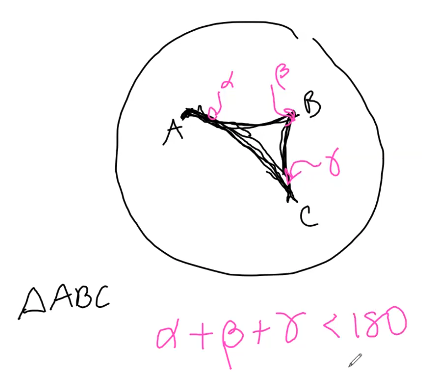 α
β
A
B
γ
C
△ABC
α+β+γ<180